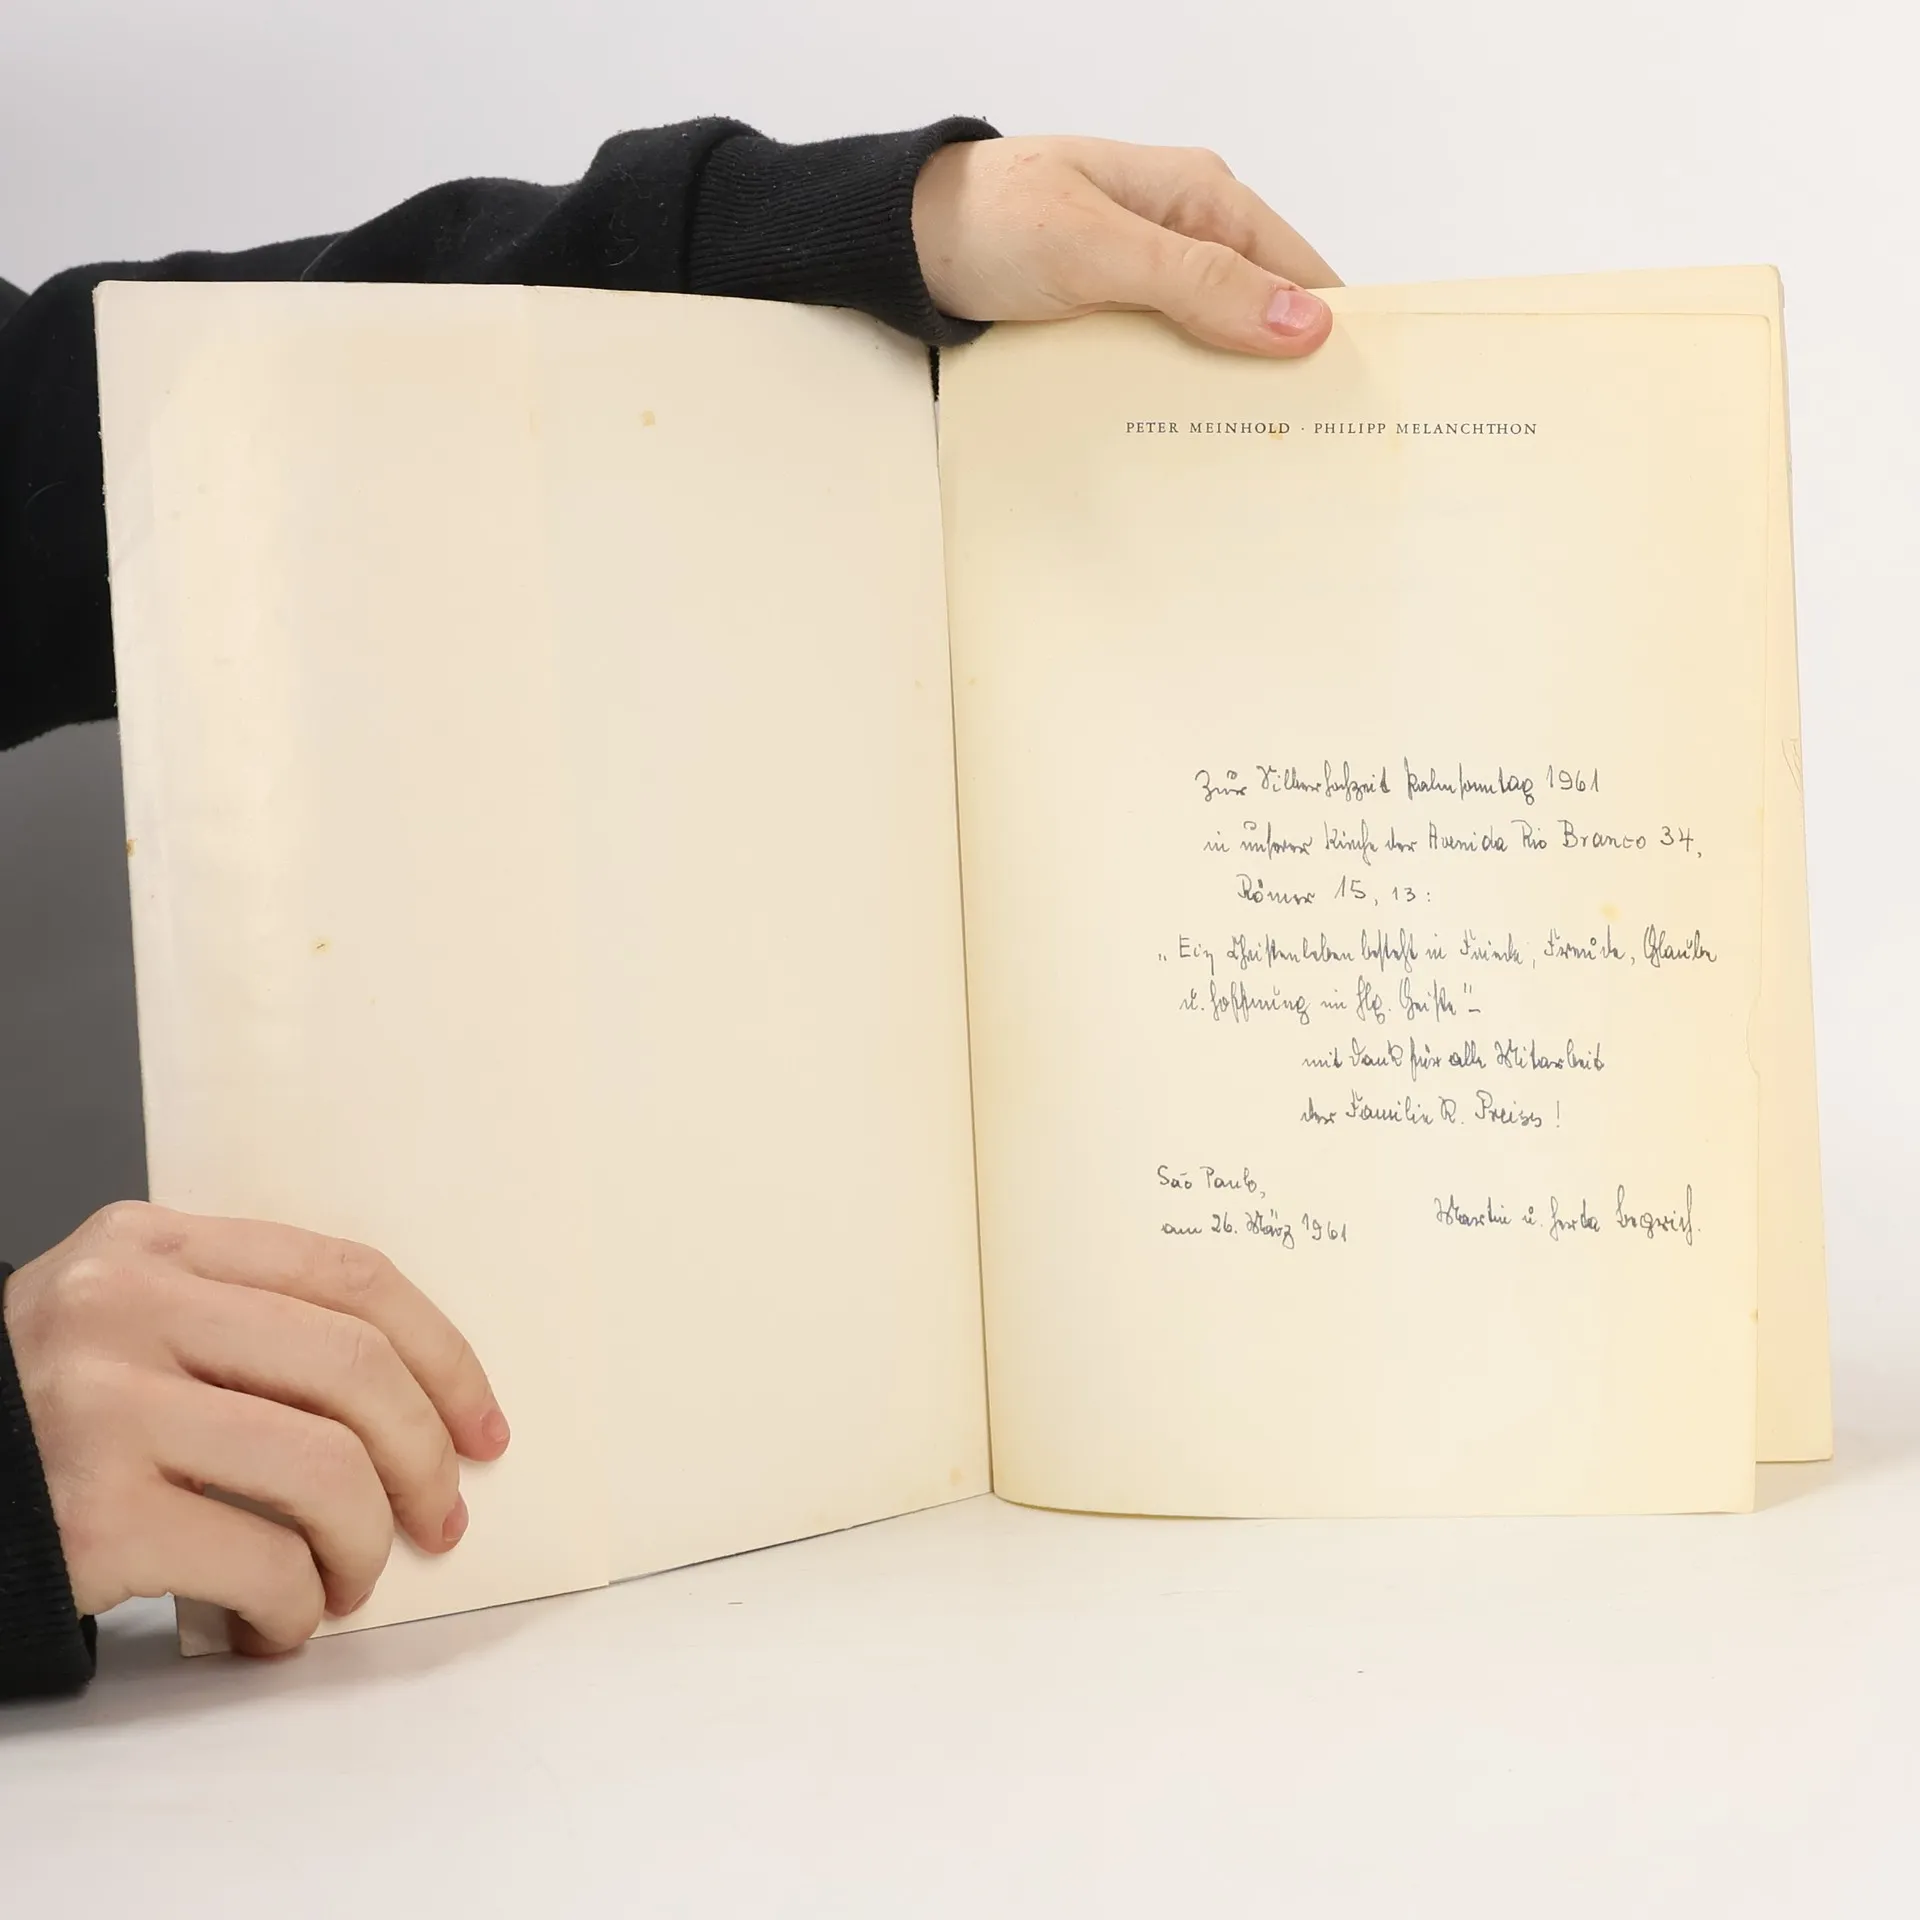 PETER MEINHOLD · PHILIPP MELANCHTHON
Zur Silberhochzeit Palmsonntag 1961
in unserer Kirche der Avenida Rio Branco 34,
Römer 15, 13:
„Ein Christenleben besteht in Friede, Freude, Glaube
u. Hoffnung im Hlg. Geiste" –
mit Dank für alle Mitarbeit
der Familie R. Preiss!
São Paulo,
am 26. März 1961
Martin u. Herta Begrich.